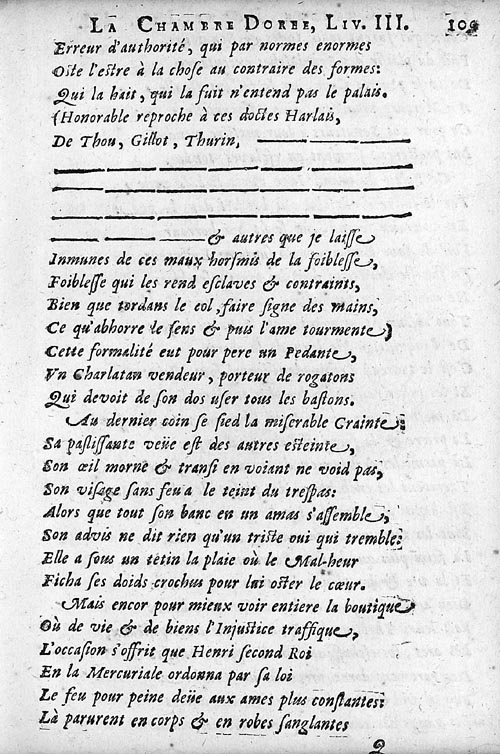 LA CHAMBRE DOREE, LIV. III. 109
Erreur d'authorité, qui par normes enormes
Oste l'estre à la chose au contraire des formes:
Qui la hait, qui la fuit n'entend pas le palais.
(Honorable reproche à ces doctes Harlais,
De Thou, Gillot, Thurin,
& autres que je laisse
Inmunes de ces maux horsmis de la foiblesse,
Foiblesse qui les rend esclaves & contraints,
Bien que tordans le col, faire signe des mains,
Ce qu'abhorre le sens & puis l'ame tourmente)
Cette formalité eut pour pere un Pedante,
Vn Charlatan vendeur, porteur de rogatons
Qui devoit de son dos user tous les bastons.
Au dernier coin se sied la miserable Crainte:
Sa paslissante veüe est des autres esteinte,
Son œil morne & transi en voiant ne void pas,
Son visage sans feu a le teint du trespas:
Alors que tout son banc en un amas s'assemble,
Son advis ne dit rien qu'un triste oui qui tremble:
Elle a sous un tetin la plaie où le Mal-heur
Ficha ses doids crochus pour lui oster le cœur.
Mais encor pour mieux voir entiere la boutique
Où de vie & de biens l'Injustice traffique,
L'occasion s'offrit que Henri second Roi
En la Mercuriale ordonna par sa loi
Le feu pour peine deüe aux ames plus constantes:
Là parurent en corps & en robes sanglantes